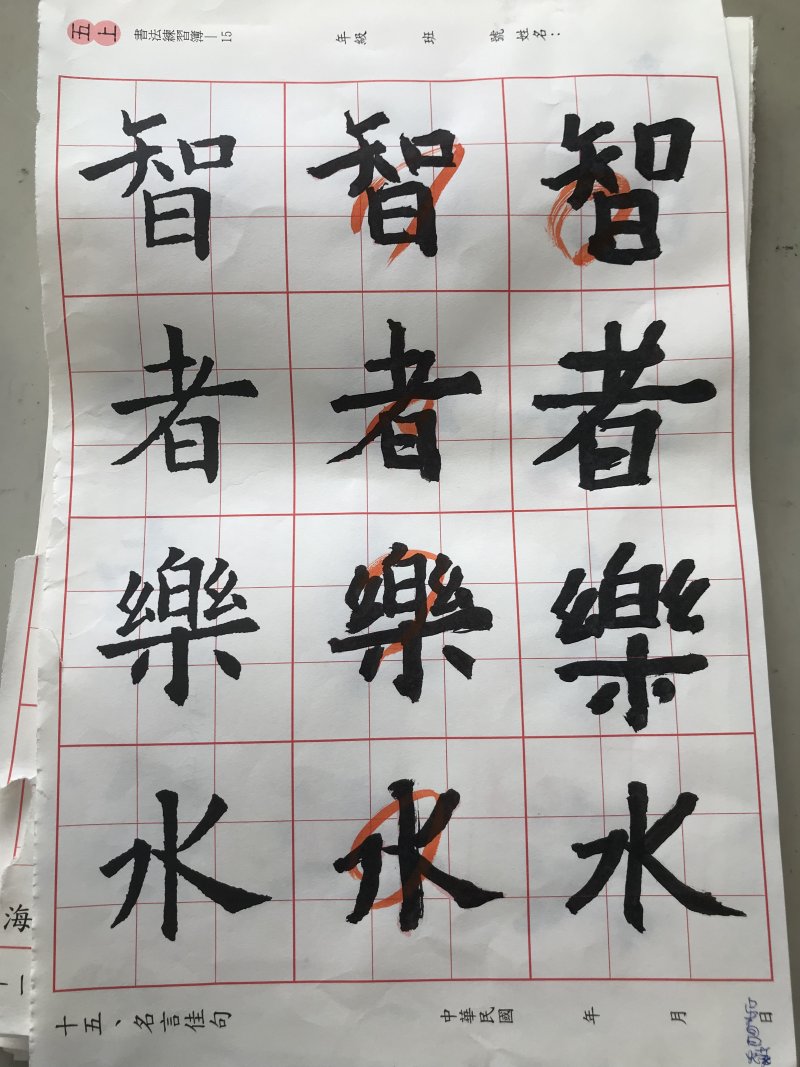 五上 書法練習簿—15
年級 班 號 姓名：
智 智 智
者 者 者
樂 樂 樂
水 水 水
十五、名言佳句
中華民國 年 月 日
海
一